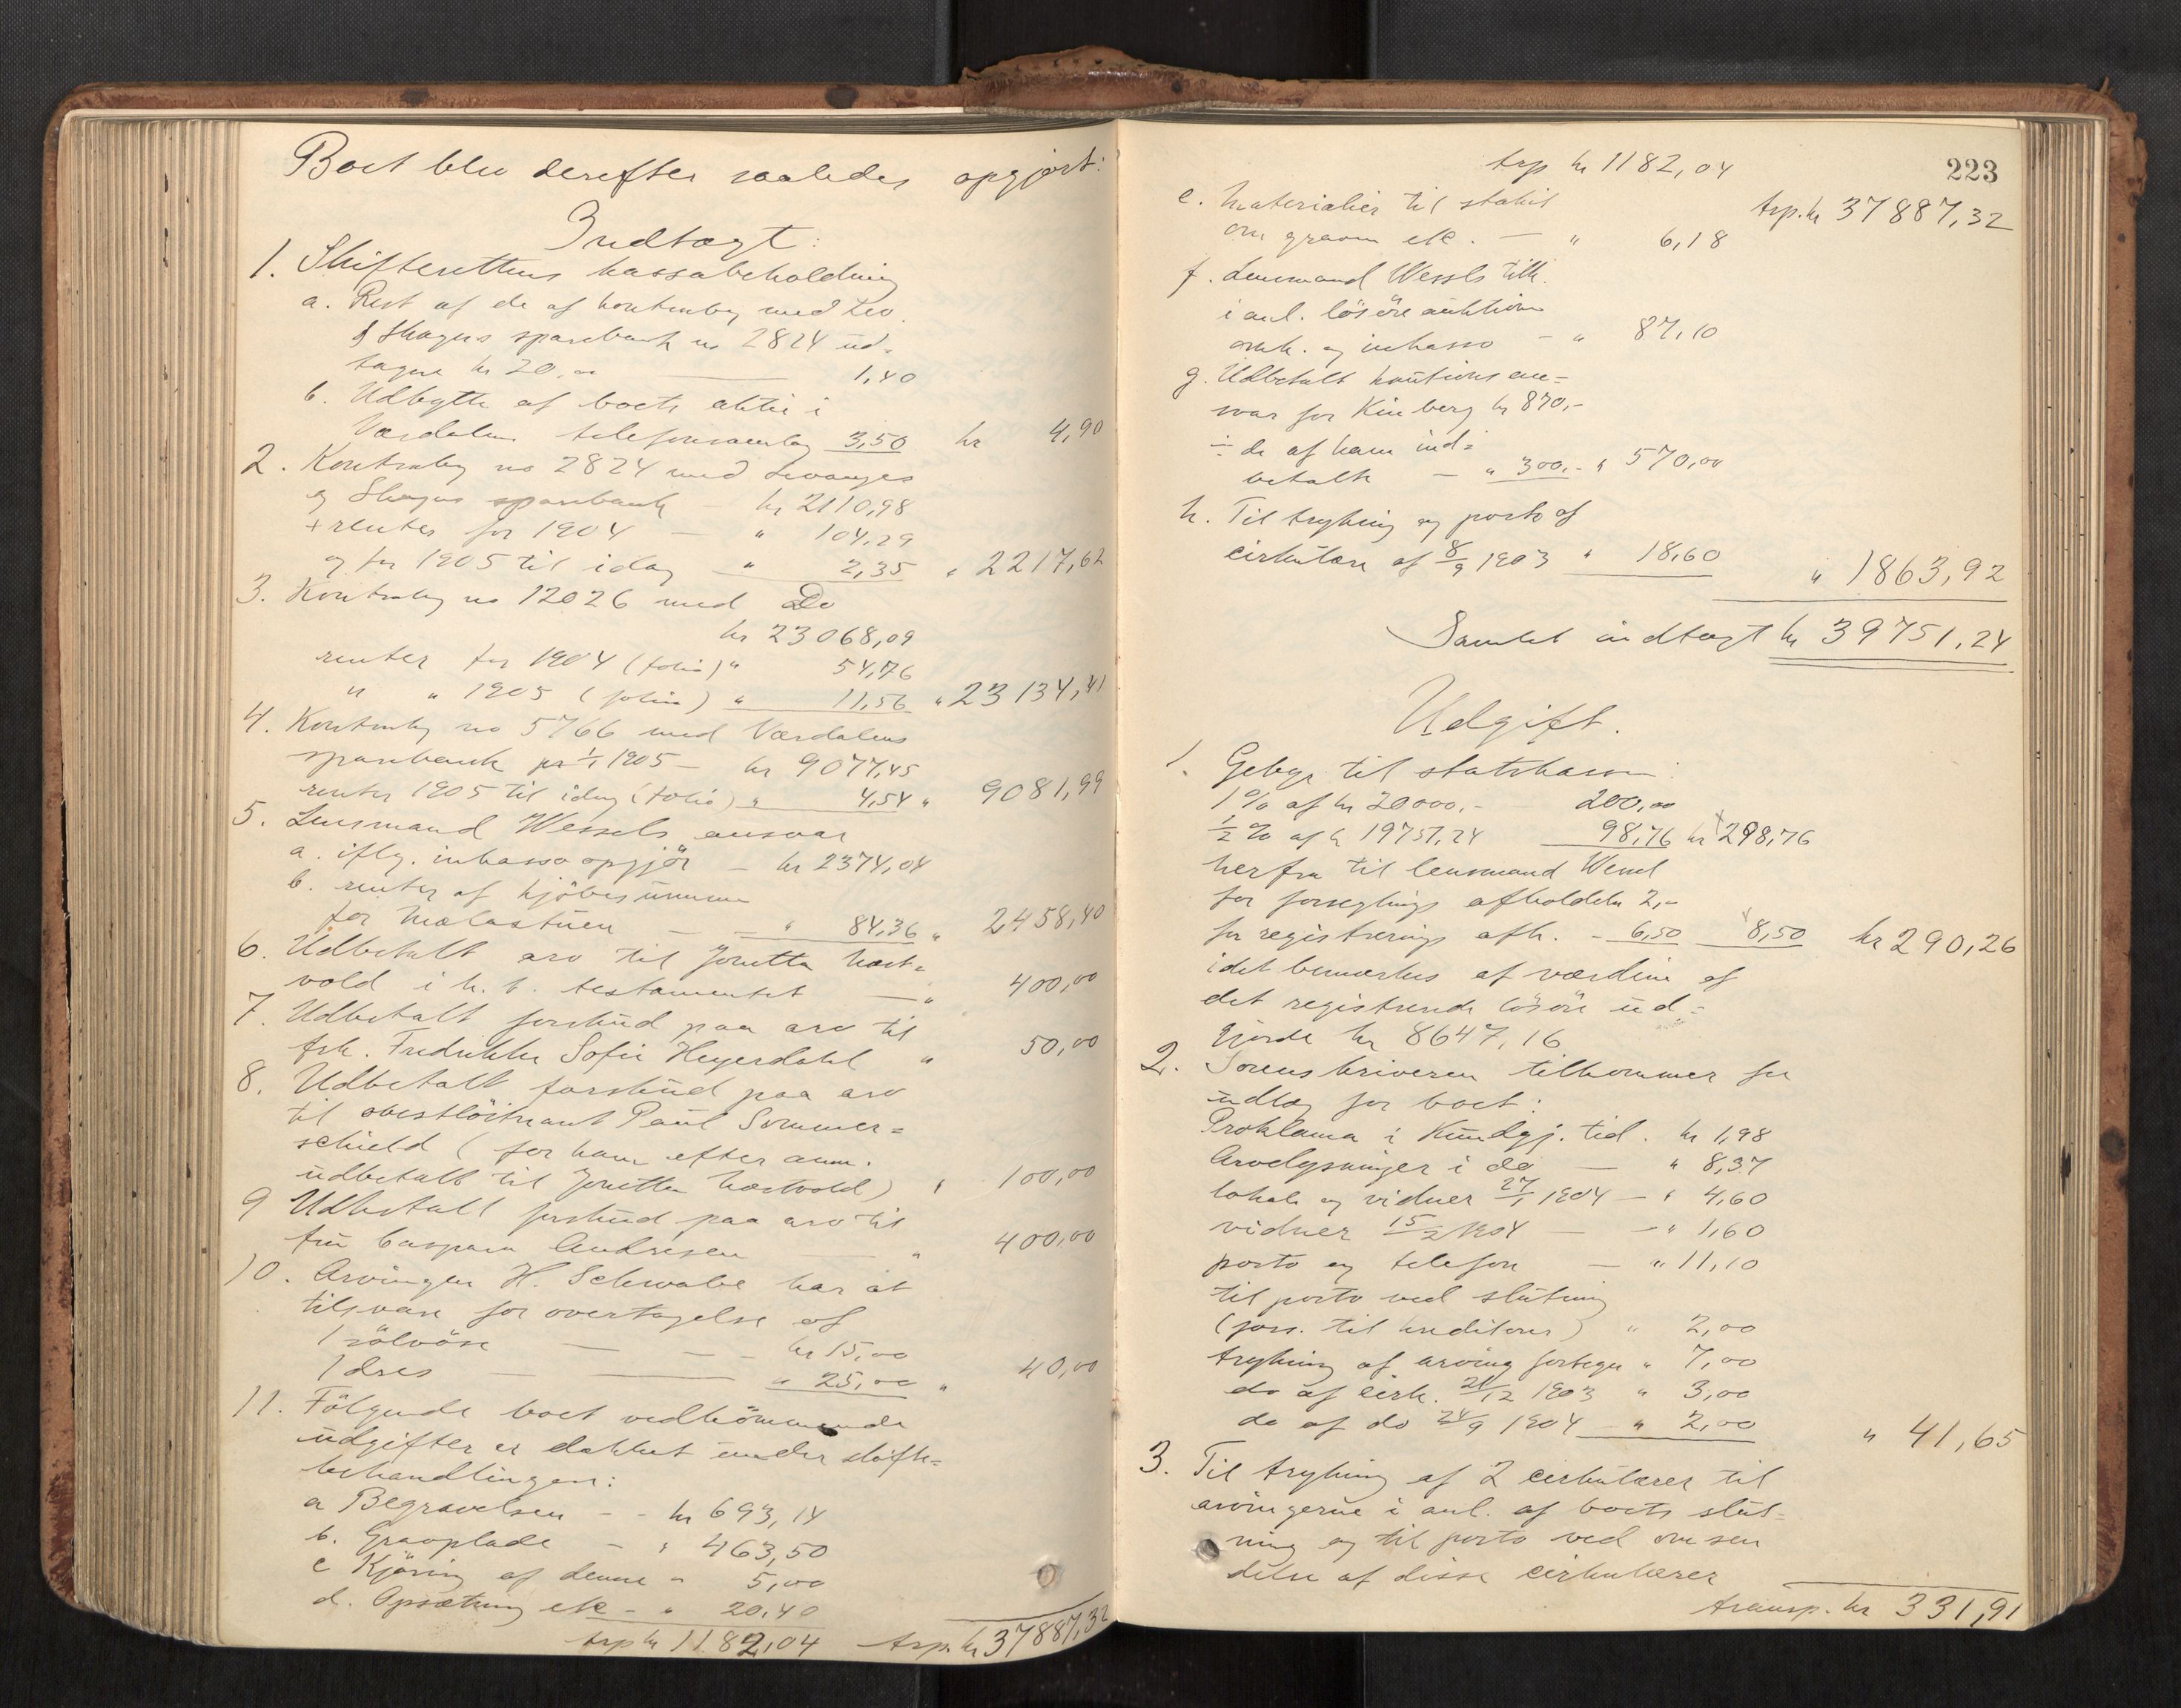 Boet blev derefter saaledes opgjort:
Indtægt:
1. Skifterettens kassabeholdning
a. Rest af de af kontrabog med Lev.
& Skogns sparebank no 2824 ud-
tagne kr 20,00 — 1,40
b. Udbytte af boets aktie i
Værdalens telefonsamlag 3,50 kr 4,90
2. Kontrabog no 2824 med Levanger
og Skogns sparebank - kr 2110,98
+ renter for 1904 — " 104,29
og for 1905 til idag — " 2,35 " 2217,62
3. Kontrabog no 12026 med Do
kr 23068,09
renter for 1904 (folio) " 54,76
" " 1905 (folio) " 11,56 " 23134,41
4. Kontrabog no 5766 med Værdalens
sparebank pr 1/1 1905 - kr 9077,45
renter 1905 til idag (folio) " 4,54 " 9081,99
5. Lensmand Wessels ansvar
a. iflg. inkassoopgjör - kr 2374,04
b. renter af kjöbesummen
for Mælastuen — " 84,36 " 2458,40
6. Udbetalt arv til Jonetta Hast-
vold i h. t. testamentet — " 400,00
7. Udbetalt forskud paa arv til
frk. Fredrikke Sofie Heyerdahl " 50,00
8. Udbetalt forskud paa arv
til oberstlöitnant Paul Sommer-
schield (for ham efter anm.
udbetalt til Jonetta Hastvold) " 100,00
9 Udbetalt forskud paa arv til
fru Caspara Andresen — " 400,00
10. Arvingen H. Schwabe har at
tilsvare for overtagelse af
1 sölvöse — kr 15,00
1 dres — " 25,00 " 40,00
11. Fölgende boet vedkömmende
udgifter er dækket under skifte-
behandlingen:
a Begravelsen - - kr 693,14
b. Gravplade - " 463,50
c Kjöring af denne " 5,00
d. Opsætning etc - " 20,40
trp kr 1182,04 trsp. kr 37887,32
223
trp kr 1182,04
trsp. kr 37887,32
e. Materialier til stakit
om graven etc. — " 6,18
f. Lensmand Wessels tilk.
i anl. lösöreauktion
omk. og inkasso - " 87,10
g. Udbetalt kautionsan-
svar for Kinberg kr 870,-
÷ de af ham ind-
betalte — " 300,- " 570,00
h. Til trykning og porto af
cirkulære af 8/9 1903 " 18,60 " 1863,92
Samlet indtægt kr 39751,24
Udgift.
1. Gebyr til statskassen:
1% af kr 20000,- 200,00
1/2 % af kr 19751,24 98,76 kr 298,76
herfra til lensmand Wessel
for forseglings afholdelse 2,-
for registrerings afh. - 6,50 8,50 kr 290,26
idet bemærkes at værdien af
det registrerede lösöre ud-
gjorde kr 8647,16
2. Sorenskriveren tilkommer for
udlæg for boet:
Proklama i Kundgj. tid. kr 1,98
Arvelysninger i do — " 8,37
lokale og vidner 27/1 1904 - " 4,60
vidner 15/2 1904 — " 1,60
porto og telefon — " 11,10
til porto ved slutning
(pass. til kreditorer) " 2,00
trykning af arving fortegn " 7,00
do af cirk. 21/12 1903 " 3,00
do af do 24/9 1904 " 2,00 " 41,65
3. Til trykning af 2 cirkulærer til
arvingerne i anl. af boets slut-
ning og til porto ved oversen
delse af disse cirkulærer
transp. kr 331,91